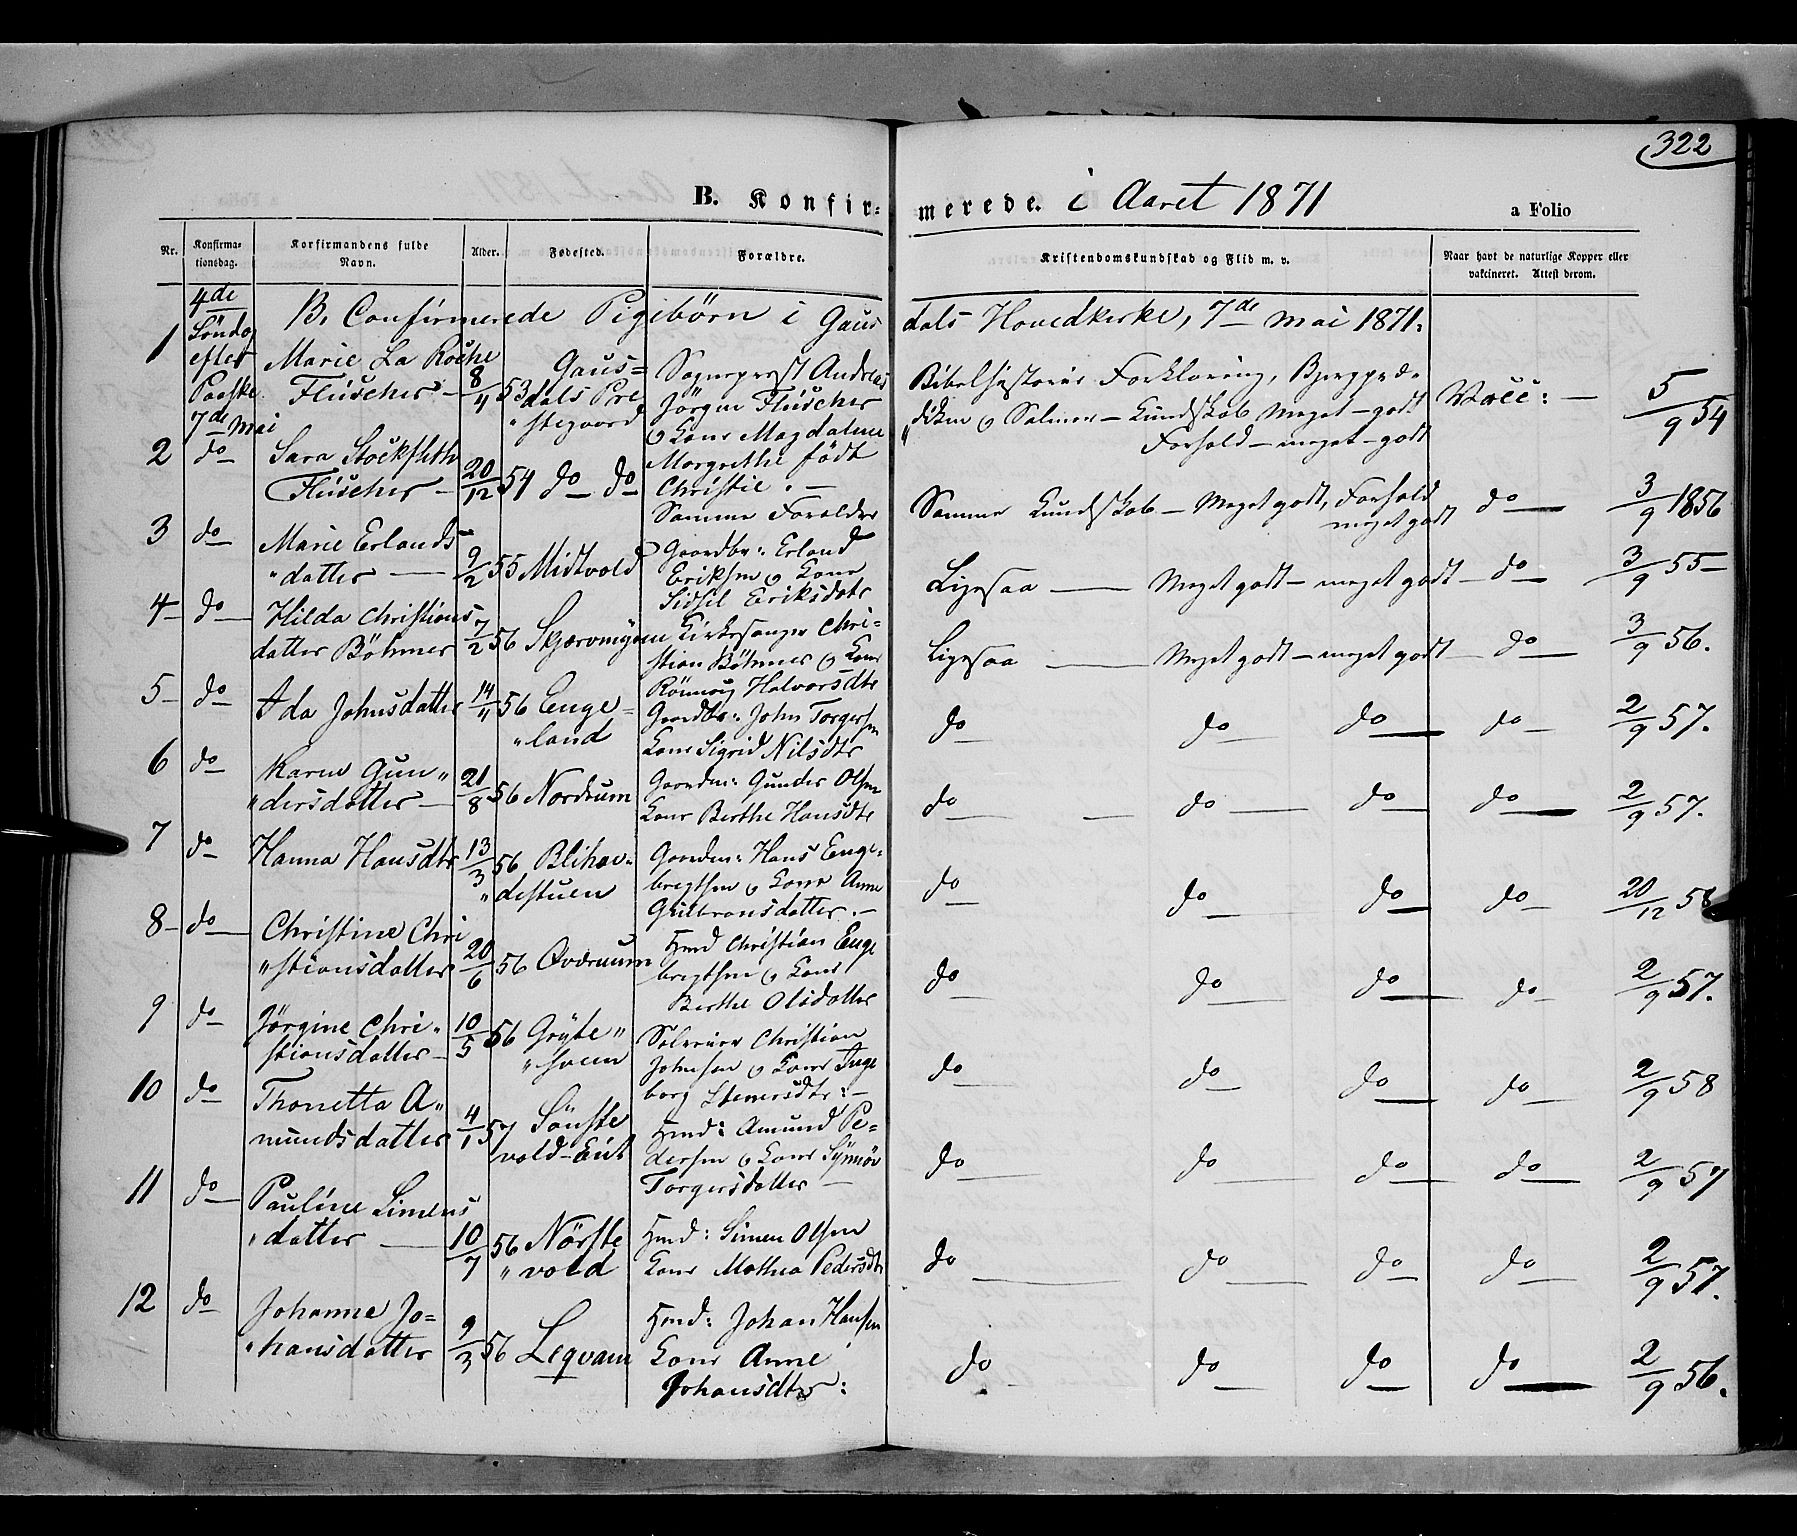 322
B. Konfir=
merede. i Aaret 1871
a Folio
Nr.
Konfirma-
tionsdag.
Korfirmandens fulde
Navn.
Alder.
Fødested.
Forældre.
Kristendomskundskab og Flid m. v.
Naar havt de naturlige Kopper eller
vakcineret. Attest derom.
B. Confirmerede Pigebörn i Gaus
dals Hovedkirke, 7de Mai 1871.
1
4de
Söndag
efter
Paaske
7de Mai
Marie La Roche
Fleischer
8/4 53
Gaus=
dals Pre
"stegaard
Sogneprest Andreas
Jörgen Fleischer
og Kone Magdalene
Margrethe födt
Christie. —
Bibelhistorie Forklaring, Bjergpræ-
"diken og Salmer — Kundskab Meget — godt
Forhold — meget — godt
Vacc: — 5/9 54
2 do
Sara Stockfleth
Fleischer —
20/12 54 do do
Samme Forældre
Samme Kundskab — Meget godt, Forhold
meget godt
do — 3/9 1856
3 do
Marie Erlands-
"datter —
9/2 55 Midtvold
Gaardbr: Erland
Eriksen og Kone
Sidsel Eriksdatr
Ligesaa — Meget godt — meget godt — do — 3/9 55 —
4 — do —
Hilda Christians
datter Böhmer
7/2 56 Skjærvmyren
Kirkesanger Chri=
stian Böhmer og Kone
Rönnoug Halvorsdtr
Ligesaa — Meget godt — meget godt — do — 3/9 56.
5 — do
Ada Johnsdatter
14/4 56 Enge=
"land
Gaardbr: John Torgersen
Kone Sigrid Nilsdtr
do do do do 2/9 57.
6 do
Karen Gun"
"dersdatter —
21/8 56 Nordrum
Gaardm: Gunder Olsen
Kone Berthe Hansdtr
do — do — do — do — 2/9 57.
7 do
Hanna Hansdtr
13/3 56 Blihav-
"destuen
Gaardm: Hans Enge-
bregtsen og Kone Anne
Gulbransdatter. —
do do do do 20/12 58
8 — do —
Christine Chri
"stiansdatter
20/6 56 Oværuum
Hmd Christian Enge
bregtsen og Kone
Berthe Olsdatter
do do do do 2/9 57.
9 do
Jörgine Chri-
stiansdatter —
10/5 56 Gryte"
"sveen
Selveier Christian
Johnsen og Kone Inge
borg Steenersdtr: —
do do do do 2/9 58
10 do
Thonetta A"
mundsdatter
4/1 57 Sönste
vold-Eiet
Hmd: Amund Pe=
dersen og Kone Synnöv
Torgersdatter —
do do do do 2/9 57
11 do
Pauline Simens
"datter —
10/7 56 Nörste
"vold
Hmd: Simen Olsen
Kone Mathea Pedersdtr
do — do — do — do — 2/9 57.
12 do
Johanne Jo=
"hansdatter
9/3 56 Leqvam
Hmd: Johan Hansen
Kone Anne
Johansdtr:
do do do do 2/9 56.